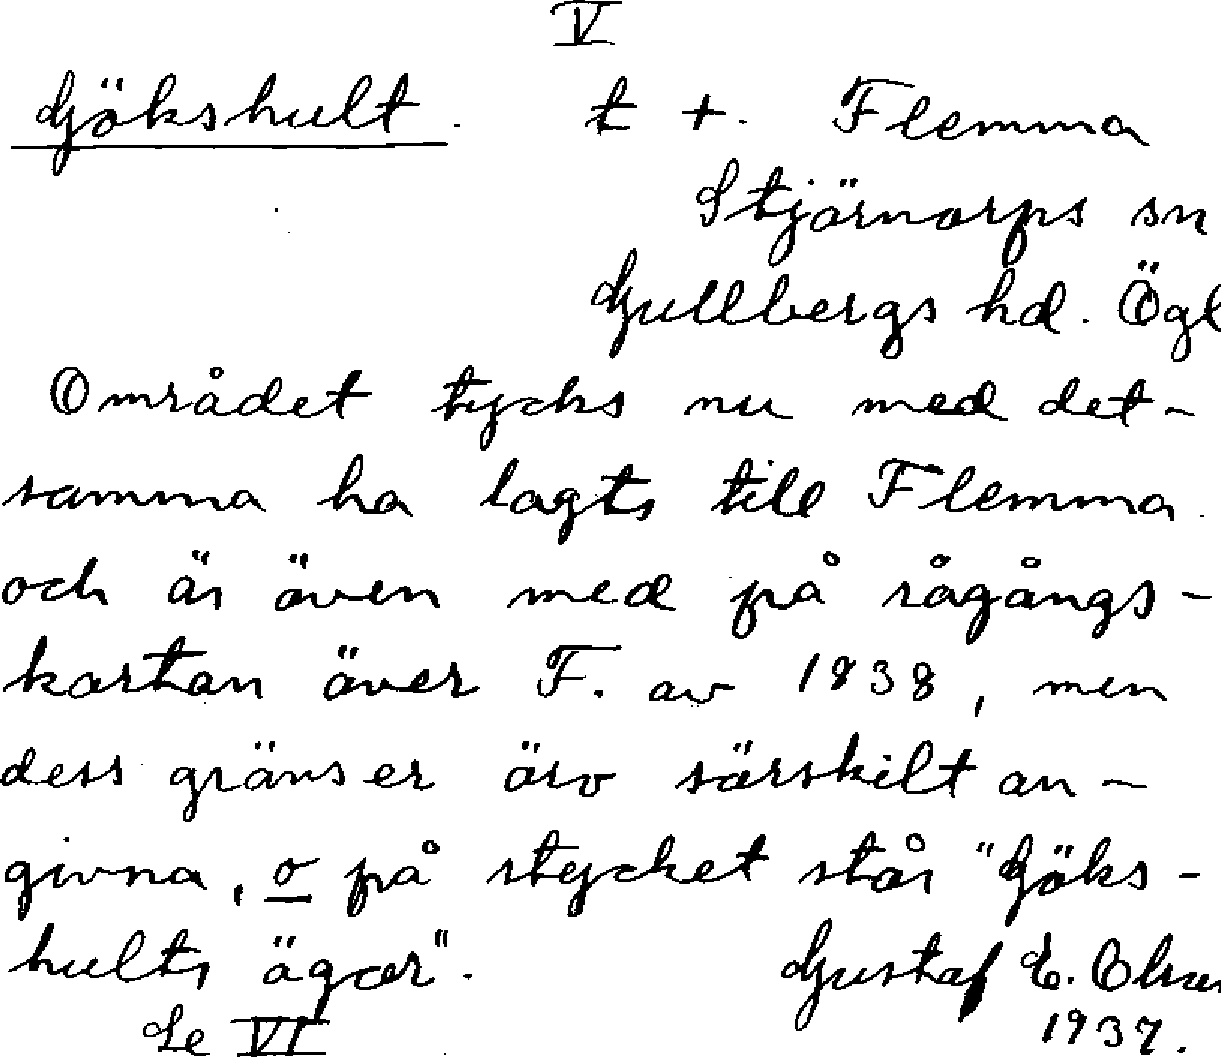 V
Gökshult. t +. Flemma
Stjärnorps sn
Gullbergs hd. Ögl
Området tycks nu med det-
samma ha lagts till Flemma
och är även med på rågångs-
kartan över F. av 1838, men
dess gränser äro särskilt an-
givna, o på stycket står "Göks-
hults ägor".
Gustaf E. Olsson
1937.
Se VI